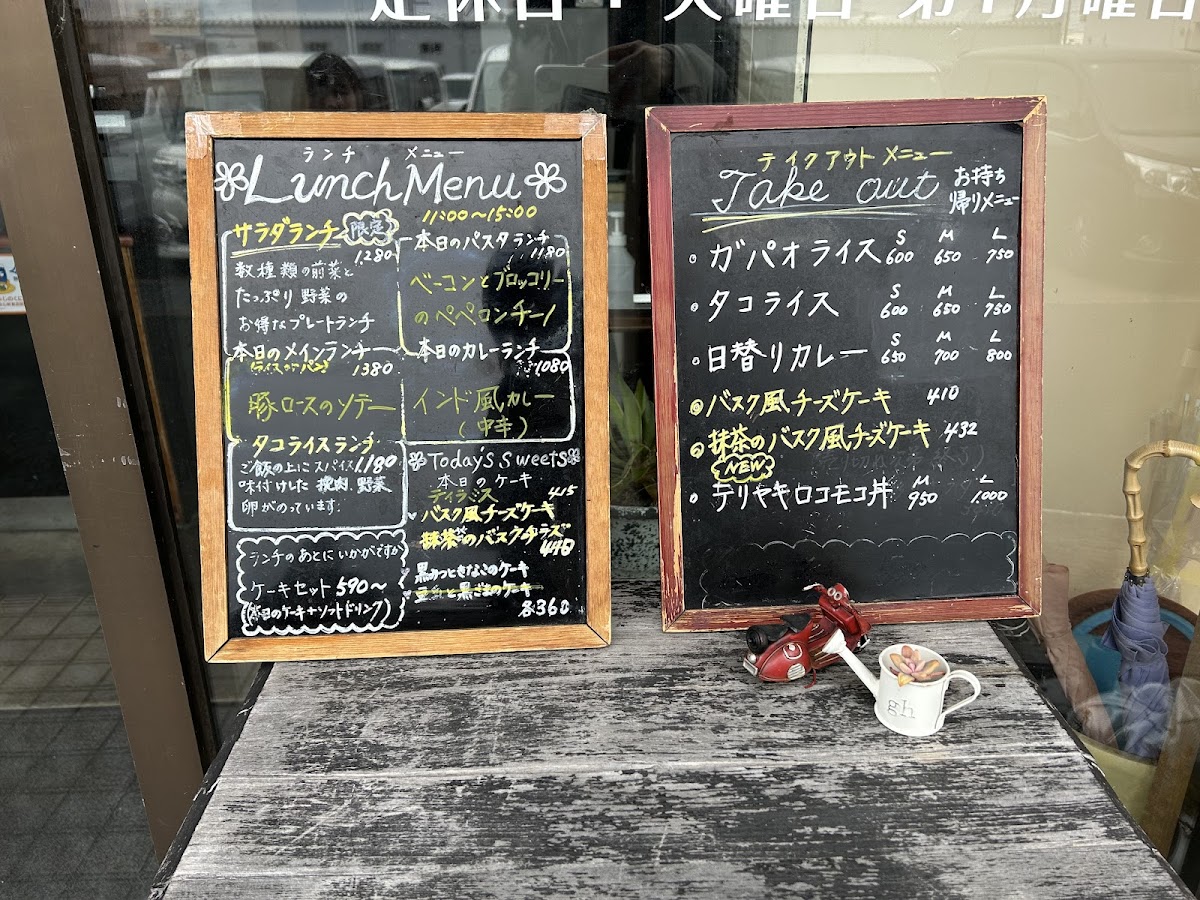 定休日:火曜日 第1月曜日
ランチ メニュー
Lunch Menu
11:00～15:00
サラダランチ 限定
1,280
数種類の前菜と
たっぷり野菜の
お得なプレートランチ
本日のパスタランチ
1180
ベーコンとブロッコリー
のペペロンチーノ
本日のメインランチ
(ライスorパン) 1380
豚ロースのソテー
本日のカレーランチ
1080
インド風カレー
(中辛)
タコライスランチ
ご飯の上にスパイス 1,180
味付けした挽肉、野菜
卵がのっています.
Today's Sweets
本日のケーキ
ティラミス 415
バスク風チーズケーキ
抹茶のバスクチーズ
448
黒みつときなこのケーキ
と黒ごまのケーキ
各360
ランチのあとにいかがですか
ケーキセット 590～
(本日のケーキ+ソフトドリンク)
テイクアウト メニュー
Take out お持ち
帰りメニュー
ガパオライス S 600 M 650 L 750
タコライス S 600 M 650 L 750
日替りカレー S 650 M 700 L 800
バスク風チーズケーキ 410
抹茶のバスク風チーズケーキ 432
NEW
テリヤキロコモコ丼 M 950 L 1,000
gh